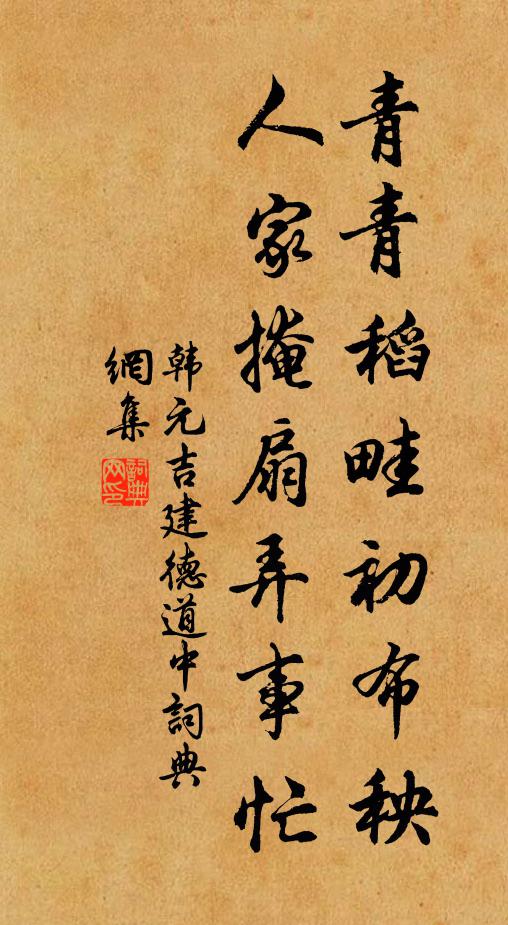 青青稻畦初布秧
人家掩扇弄事忙
韩元吉建德道中詞典
網集
詞典
网印